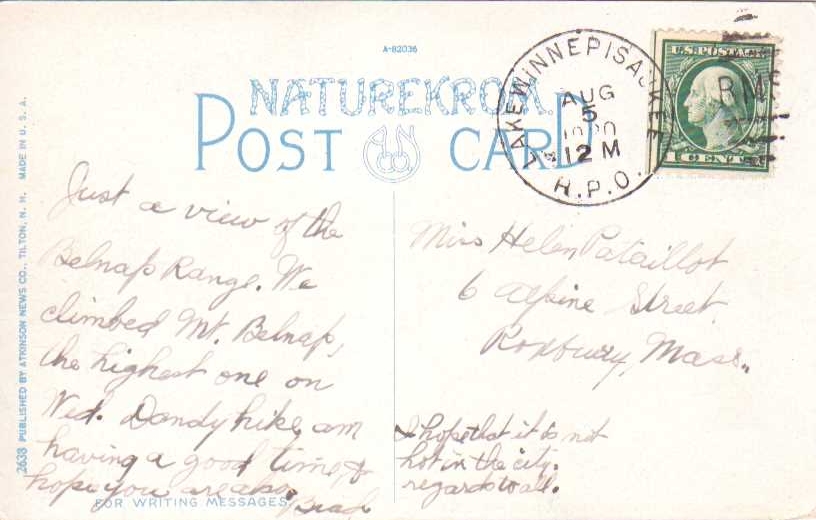 A-82036
NATUREKROM
POST CARD
LAKE WINNEPISAUKEE
AUG
5
12 M
R.P.O.
U.S. POSTAGE
RMS
1 CENT 1
2638 PUBLISHED BY ATKINSON NEWS CO., TILTON, N. H. MADE IN U. S. A.
Just a view of the
Belnap Range. We
climbed Mt. Belnap,
the highest one on
Wed. Dandy hike, am
having a good time, &
hope you are also.
Brad
FOR WRITING MESSAGES
Miss Helen Pataillot
6 Alpine Street,
Roxbury, Mass.
I hope that it is not
hot in the city.
regards to all.